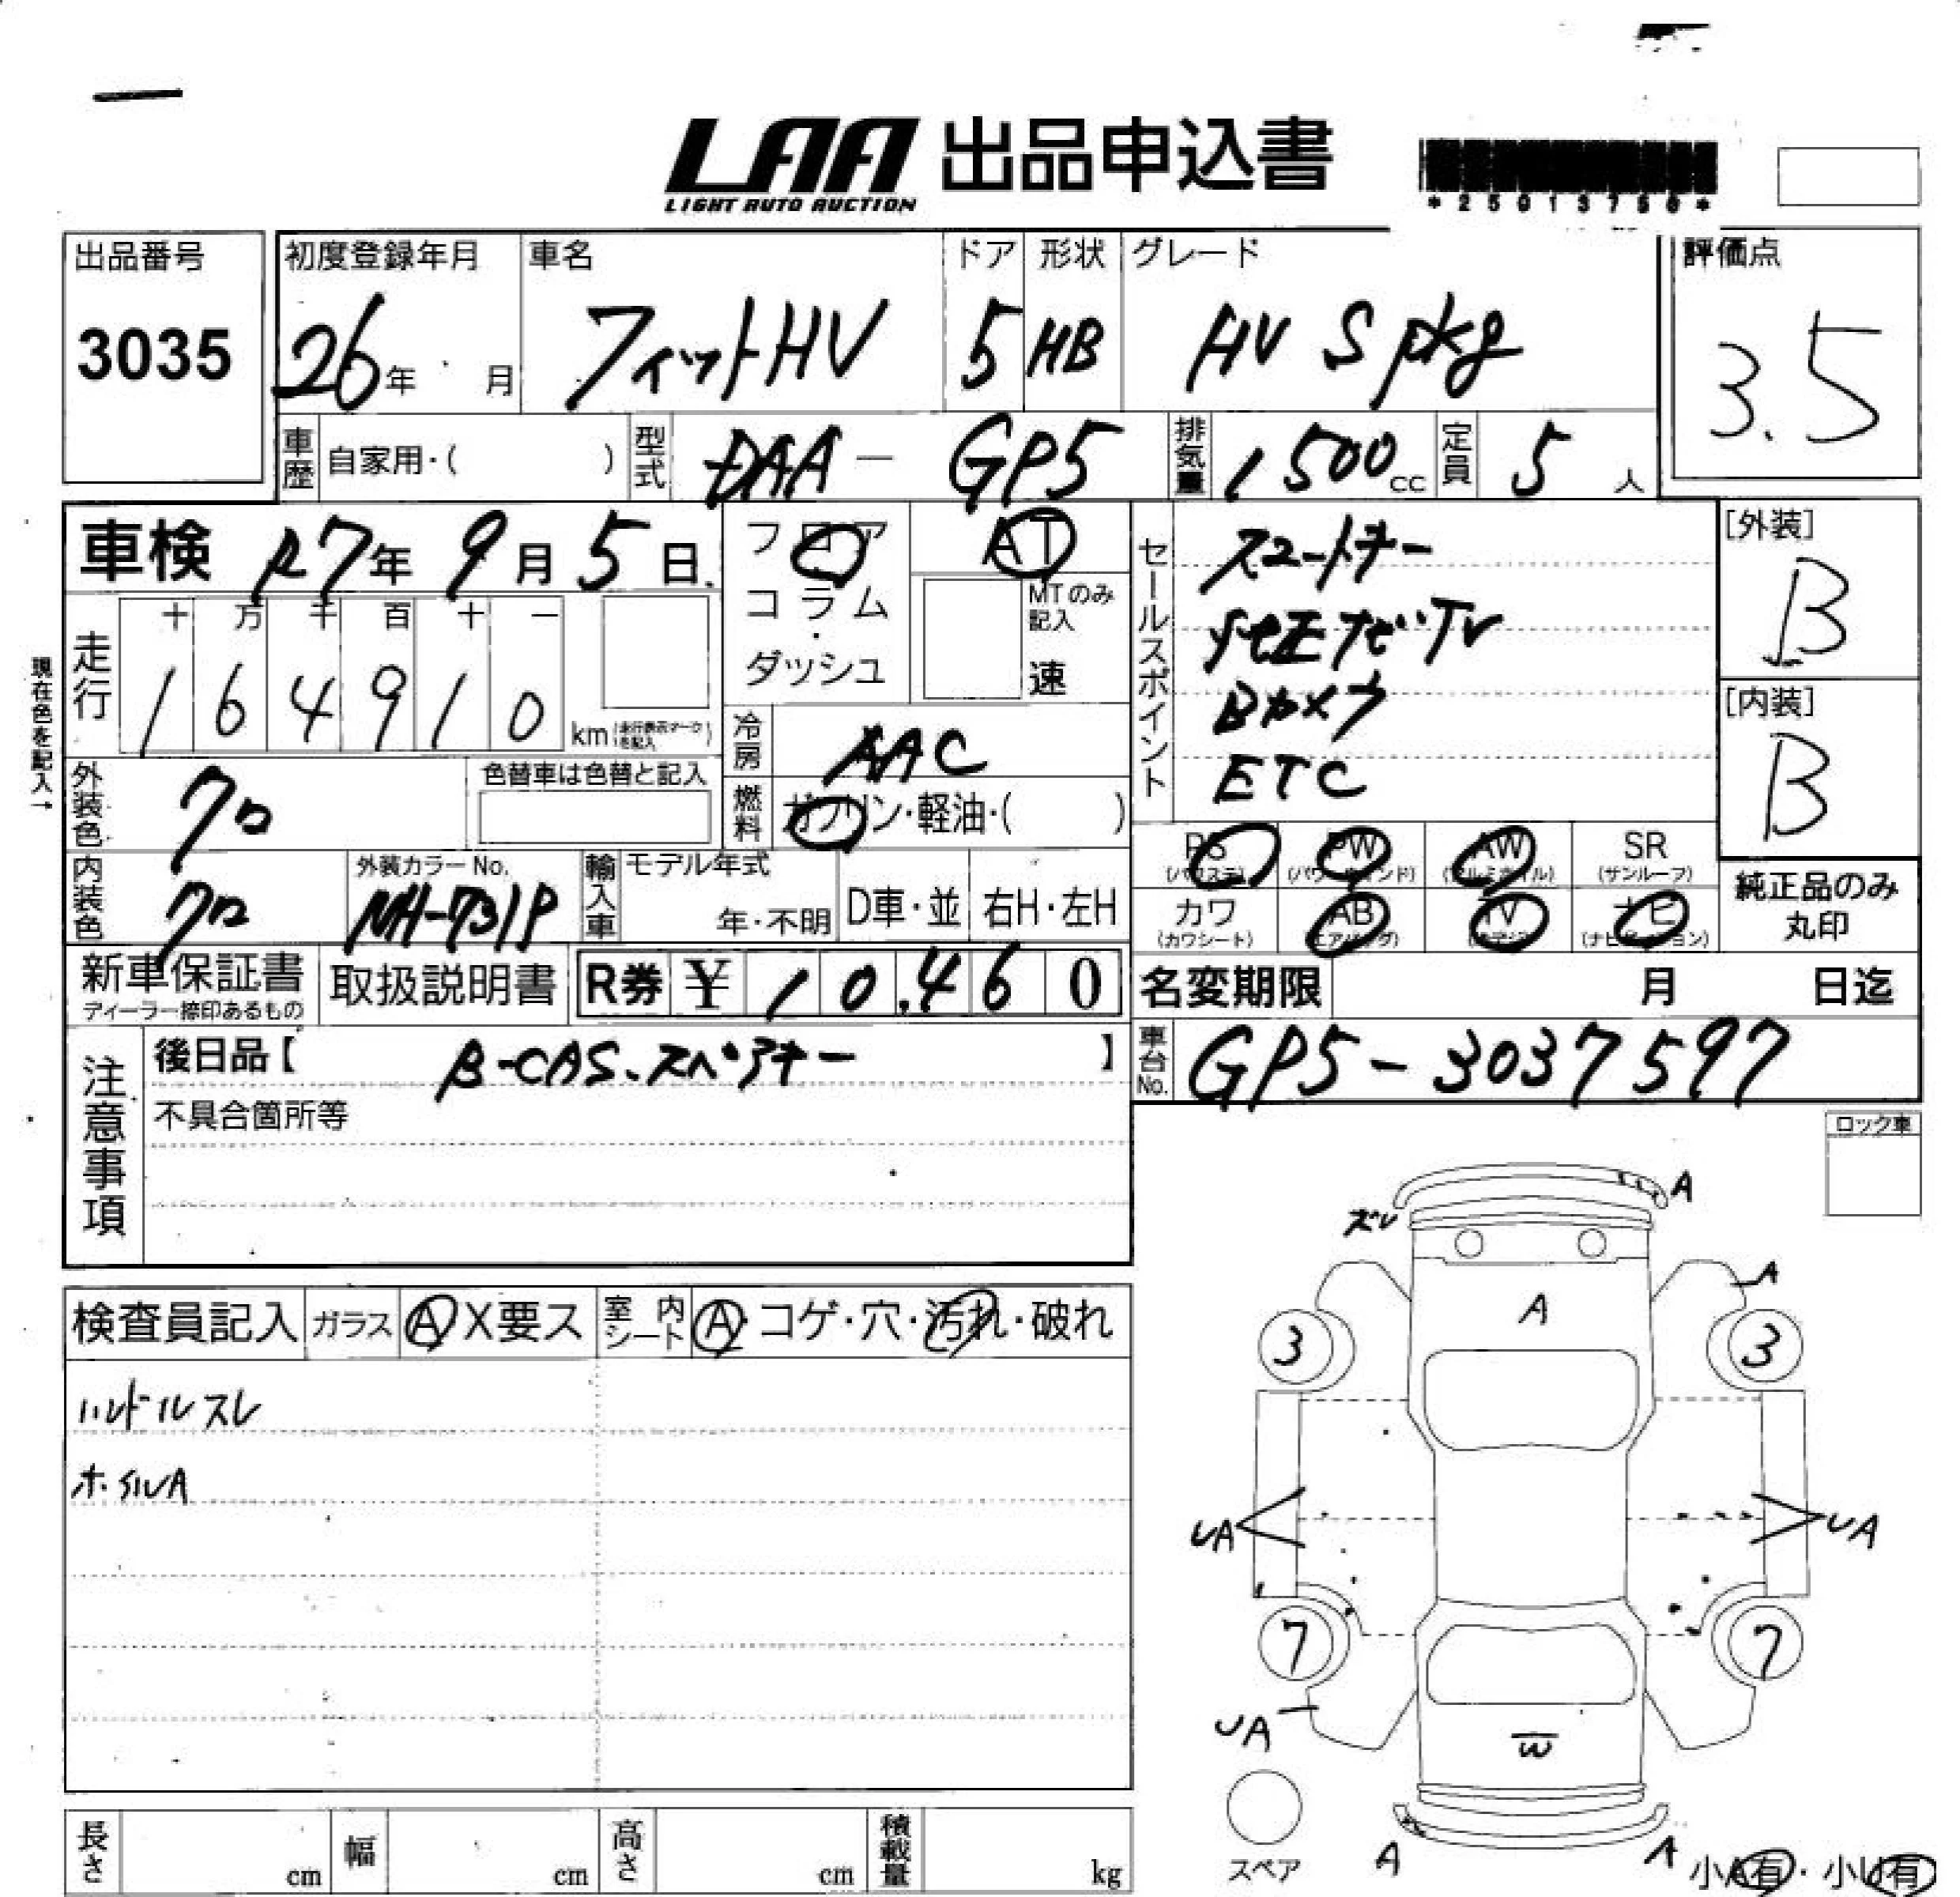 LAA 出品申込書
LIGHT AUTO AUCTION
出品番号
3035
初度登録年月
26年 月
車名
フィットHV
ドア
5
形状
HB
グレード
HV S pkg
評価点
3.5
車歴 自家用・( )
型式 DAA - GP5
排気量 1500cc
定員 5人
車検 R7年 9月 5日
フロア
コラム
・
ダッシュ
AT
MTのみ
記入
速
セールスポイント
スマートキー
純正ナビTV
Bカメラ
ETC
[外装]
B
[内装]
B
現在色を記入→
走行
十 万 千 百 十 一
1 6 4 9 1 0 km (走行表示マークを記入)
冷房 AAC
燃料 ガソリン・軽油・( )
外装色 クロ
色替車は色替と記入
内装色 クロ
外装カラーNo.
NH-731P
輸入車
モデル年式
年・不明
D車・並
右H・左H
PS
(パワステ)
PW
(パワーウィンド)
AW
(アルミホイル)
SR
(サンルーフ)
カワ
(カワシート)
AB
(エアバッグ)
TV
ナビ
(ナビゲーション)
純正品のみ
丸印
新車保証書
ディーラー捺印あるもの
取扱説明書
R券 ¥ 10,460
名変期限 月 日迄
車台No. GP5-3037597
注意事項
後日品【 B-CAS、スペアキー 】
不具合箇所等
ロック車
検査員記入
ガラス A X要ス
室内シート A・コゲ・穴・汚れ・破れ
ハンドルスレ
ホイルA
A
ズレ
A
A
3
3
UA
UA
7
7
UA
W
スペア
A
A
小A有・小U有
長さ cm
幅 cm
高さ cm
積載量 kg